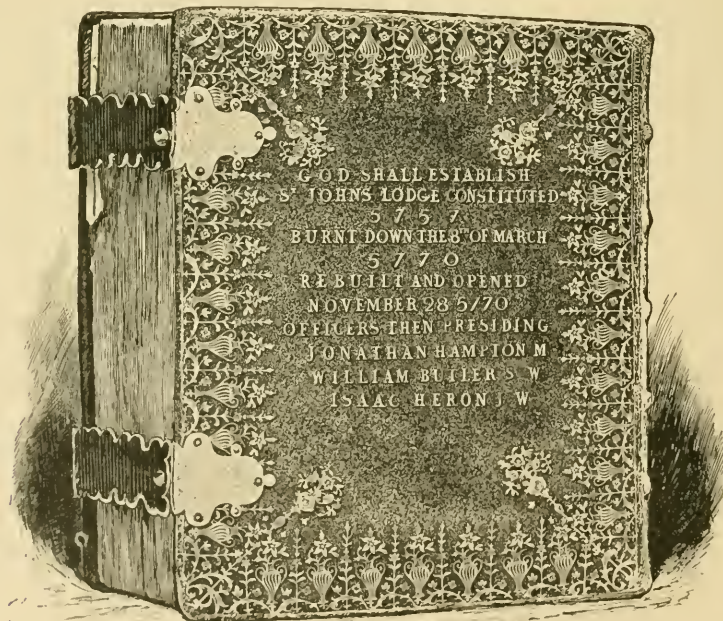 GOD SHALL ESTABLISH
ST JOHNS LODGE CONSTITUTED
5757
BURNT DOWN THE 8TH OF MARCH
5770
REBUILT AND OPENED
NOVEMBER 28 5770
OFFICERS THEN PRESIDING
JONATHAN HAMPTON M
WILLIAM BUTLER S W
ISAAC HERON J W